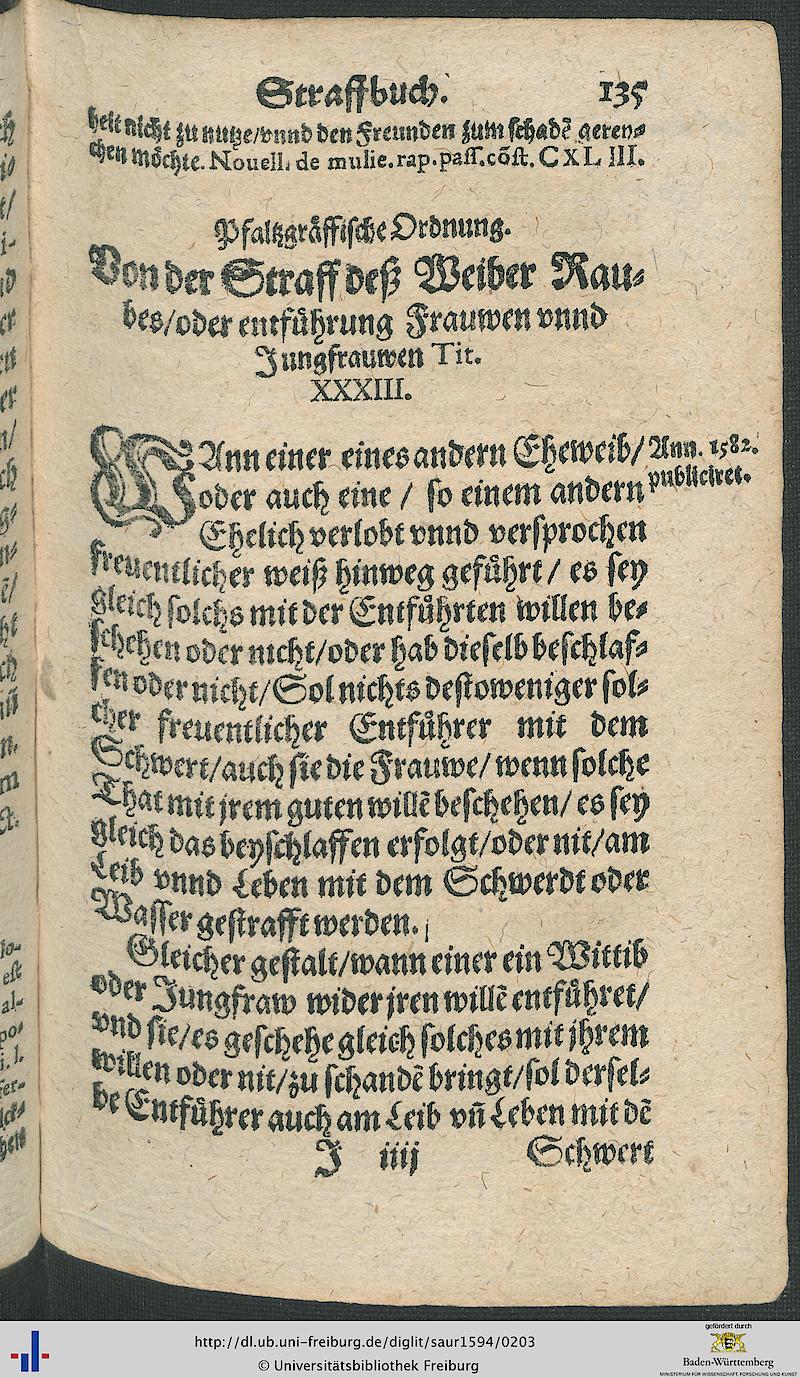 Straffbuch. 135
heit nicht zu nutze/vnnd den Freunden zum schadẽ gerey⸗
chen möchte. Novell. de mulie. rap. pass. cõst. CXLIII.
Pfaltzgräffische Ordnung.
Von der Straff deß Weiber Rau⸗
bes/oder entführung Frauwen vnnd
Jungfrauwen Tit.
XXXIII.
WAnn einer eines andern Eheweib/ Ann. 1582.
oder auch eine / so einem andern publiciret.
Ehelich verlobt vnnd versprochen
freuentlicher weiß hinweg geführt / es sey
gleich solchs mit der Entführten willen be⸗
schehen oder nicht/oder hab dieselb beschlaf⸗
fen oder nicht/Sol nichts destoweniger sol⸗
cher freuentlicher Entführer mit dem
Schwert/auch sie die Frauwe/wenn solche
That mit jrem guten willẽ beschehen/ es sey
gleich das beyschlaffen erfolgt/oder nit/am
Leib vnnd Leben mit dem Schwerdt oder
Wasser gestrafft werden.
Gleicher gestalt/wann einer ein Wittib
oder Jungfraw wider jren willẽ entführet/
vnd sie/es geschehe gleich solches mit jhrem
willen oder nit/zu schandẽ bringt/sol dersel⸗
be Entführer auch am Leib vñ Leben mit dẽ
J iiij Schwert
http://dl.ub.uni-freiburg.de/diglit/saur1594/0203
© Universitätsbibliothek Freiburg
gefördert durch
Baden-Württemberg
MINISTERIUM FÜR WISSENSCHAFT, FORSCHUNG UND KUNST